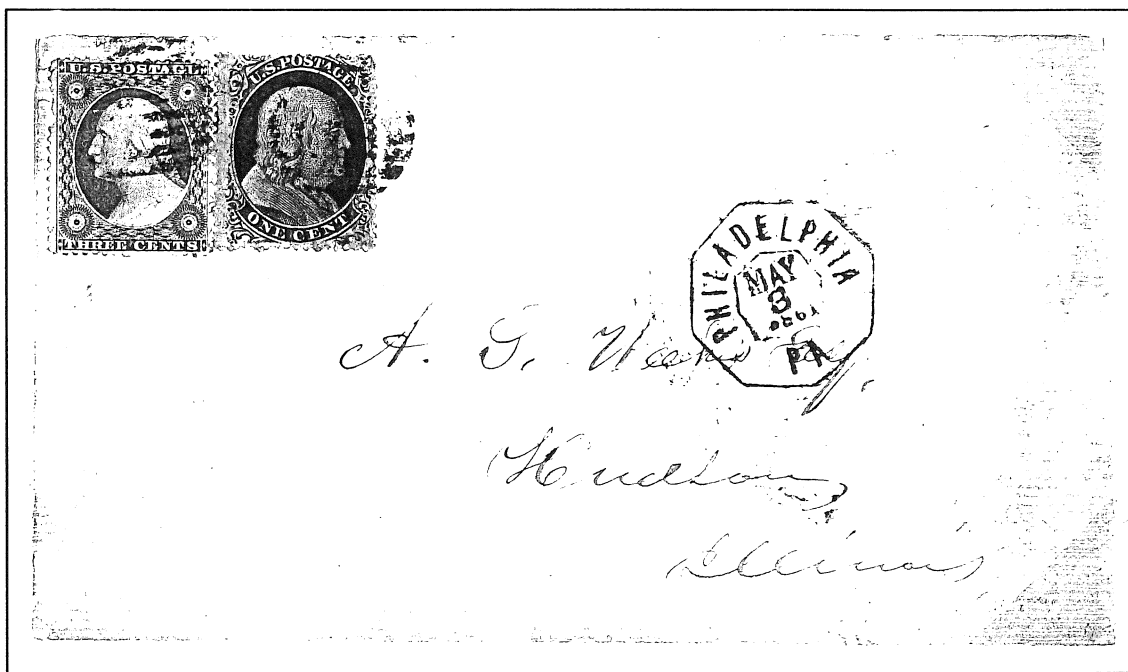 U.S. POSTAGE
THREE CENTS
U.S. POSTAGE
ONE CENT
PHILADELPHIA
MAY
3
1861
PA
A. G.
Hudson
Illinois